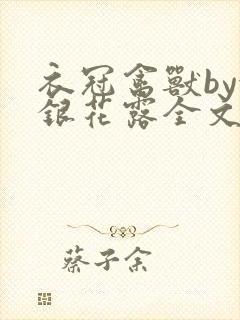 衣冠禽獸by
銀花露全文
蔡子余